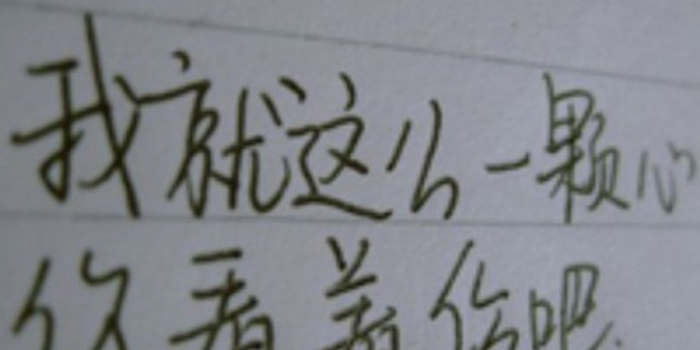 我就这么一颗心
你看着伤吧